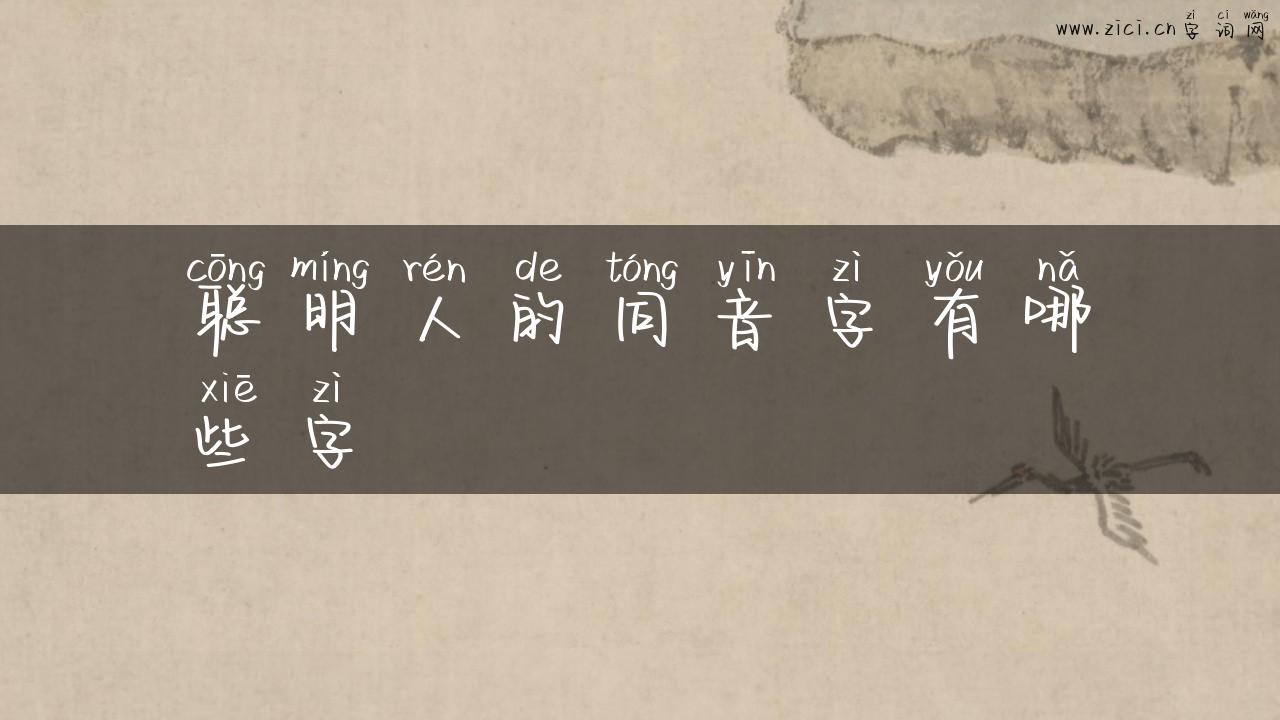 zì cí wǎng
www.zici.cn 字 词 网
cōng míng rén de tóng yīn zì yǒu nǎ
聪 明 人 的 同 音 字 有 哪
xiē zì
些 字